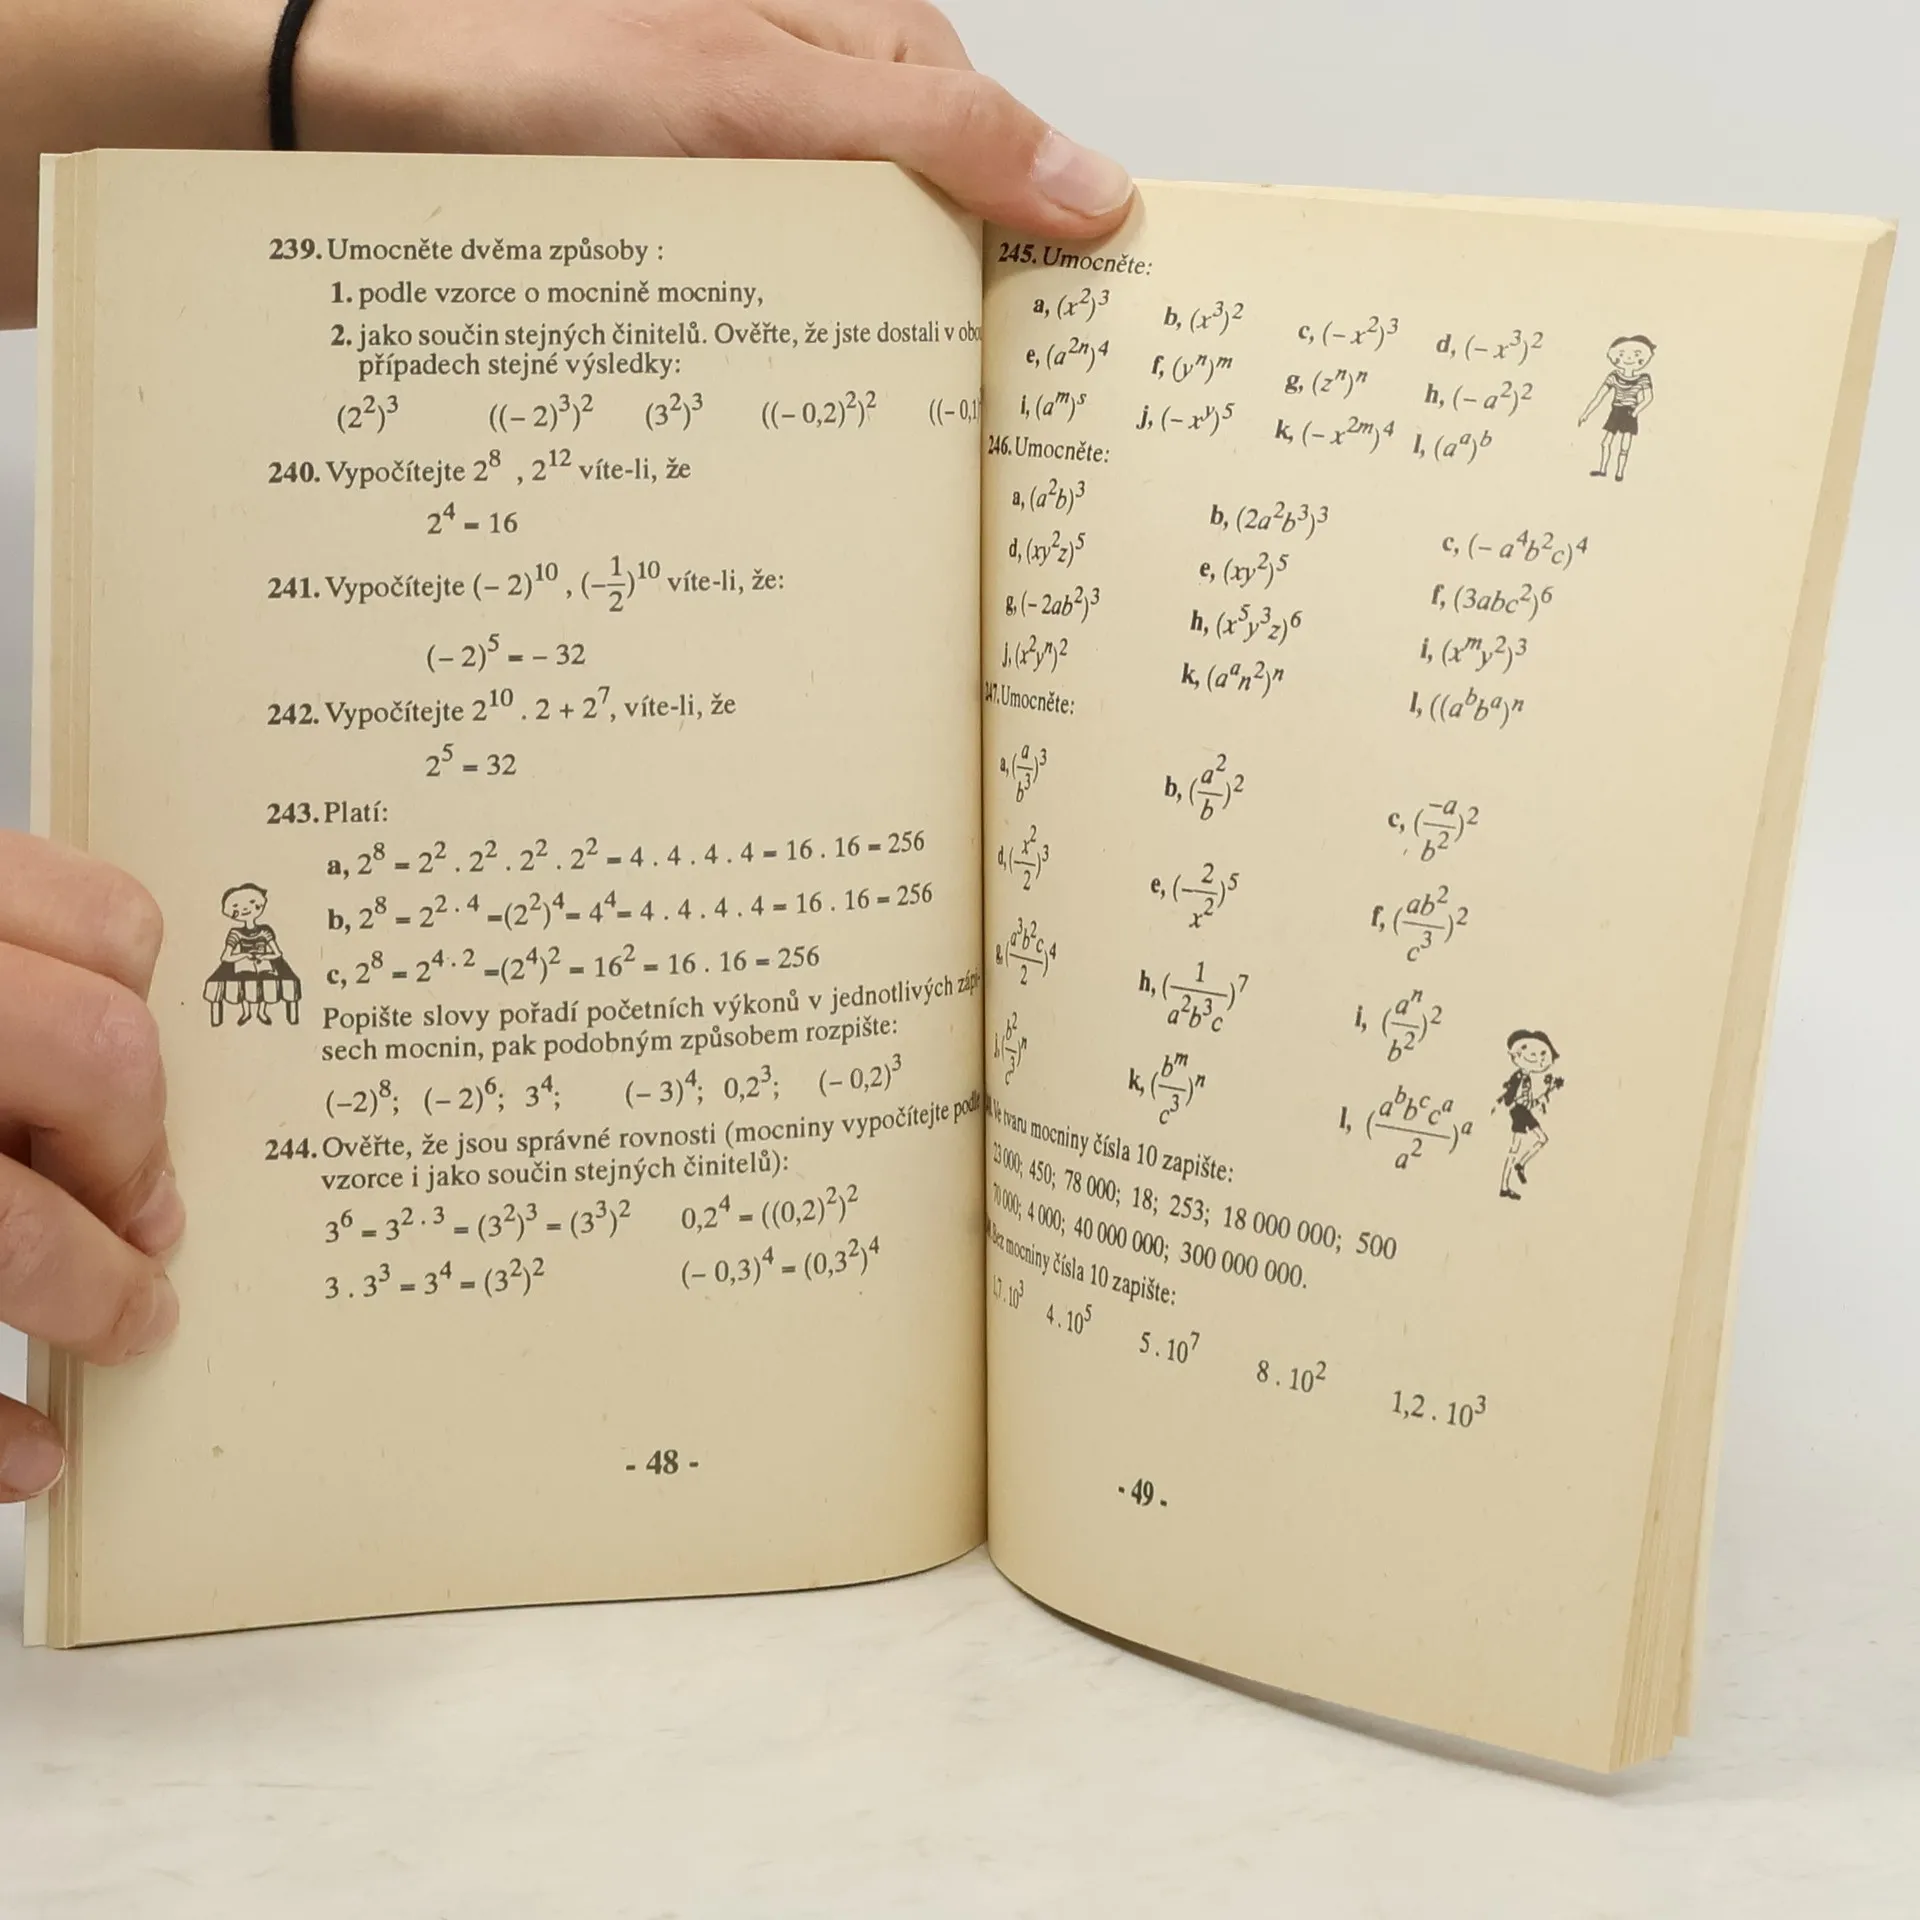 239. Umocněte dvěma způsoby :
1. podle vzorce o mocnině mocniny,
2. jako součin stejných činitelů. Ověřte, že jste dostali v
případech stejné výsledky:
(2²)³ ((– 2)³)² (3²)³ ((– 0,2)²)² ((– 0,1
240. Vypočítejte 2⁸ , 2¹² víte-li, že
2⁴ = 16
241. Vypočítejte (– 2)¹⁰ , (–1/2)¹⁰ víte-li, že:
(– 2)⁵ = – 32
242. Vypočítejte 2¹⁰ . 2 + 2⁷, víte-li, že
2⁵ = 32
243. Platí:
a, 2⁸ = 2² . 2² . 2² . 2² = 4 . 4 . 4 . 4 = 16 . 16 = 256
b, 2⁸ = 2² ˙ ⁴ =(2²)⁴= 4⁴= 4 . 4 . 4 . 4 = 16 . 16 = 256
c, 2⁸ = 2⁴ ˙ ² =(2⁴)² = 16² = 16 . 16 = 256
Popište slovy pořadí početních výkonů v jednotlivých zápi-
sech mocnin, pak podobným způsobem rozpište:
(–2)⁸; (– 2)⁶; 3⁴; (– 3)⁴; 0,2³; (– 0,2)³
244. Ověřte, že jsou správné rovnosti (mocniny vypočítejte podle
vzorce i jako součin stejných činitelů):
3⁶ = 3² ˙ ³ = (3²)³ = (3³)² 0,2⁴ = ((0,2)²)²
3 . 3³ = 3⁴ = (3²)² (– 0,3)⁴ = (0,3²)⁴
- 48 -
245. Umocněte:
a, (x²)³ b, (x³)² c, (– x²)³ d, (– x³)²
e, (a²ⁿ)⁴ f, (yⁿ)ᵐ g, (zⁿ)ⁿ h, (– a²)²
i, (aᵐ)ˢ j, (– xʸ)⁵ k, (– x²ᵐ)⁴ l, (aᵃ)ᵇ
246. Umocněte:
a, (a²b)³ b, (2a²b³)³ c, (– a⁴b²c)⁴
d, (xy²z)⁵ e, (xy²)⁵ f, (3abc²)⁶
g, (– 2ab²)³ h, (x⁵y³z)⁶ i, (xᵐy²)³
j, (x²yⁿ)² k, (aᵃn²)ⁿ l, ((aᵇbᵃ)ⁿ
247. Umocněte:
a, (a/b³)³ b, (a²/b)² c, (–a/b²)²
d, (–x²/2)³ e, (–2/x²)⁵ f, (ab²/c³)²
g, (a³b²c/2)⁴ h, (1/a²b³c)⁷ i, (aⁿ/b²)²
j, (b²/c³)ⁿ k, (bᵐ/c³)ⁿ l, (aᵇbᶜcᵃ/a²)ᵃ
Ve tvaru mocniny čísla 10 zapište:
23 000; 450; 78 000; 18; 253; 18 000 000; 500
70 000; 4 000; 40 000 000; 300 000 000.
Bez mocniny čísla 10 zapište:
1,7 . 10³ 4 . 10⁵ 5 . 10⁷ 8 . 10² 1,2 . 10³
- 49 -